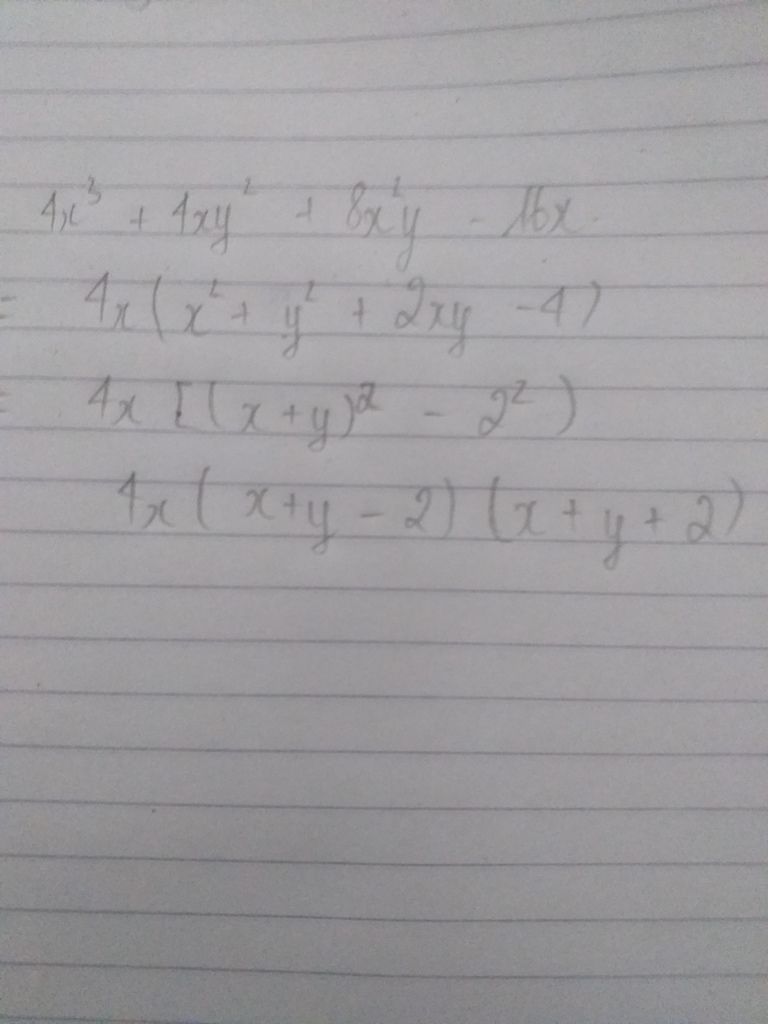 4x³ + 4xy² + 8x²y - 16x
= 4x(x² + y² + 2xy - 4)
= 4x [(x+y)² - 2²)
4x(x+y - 2)(x + y + 2)